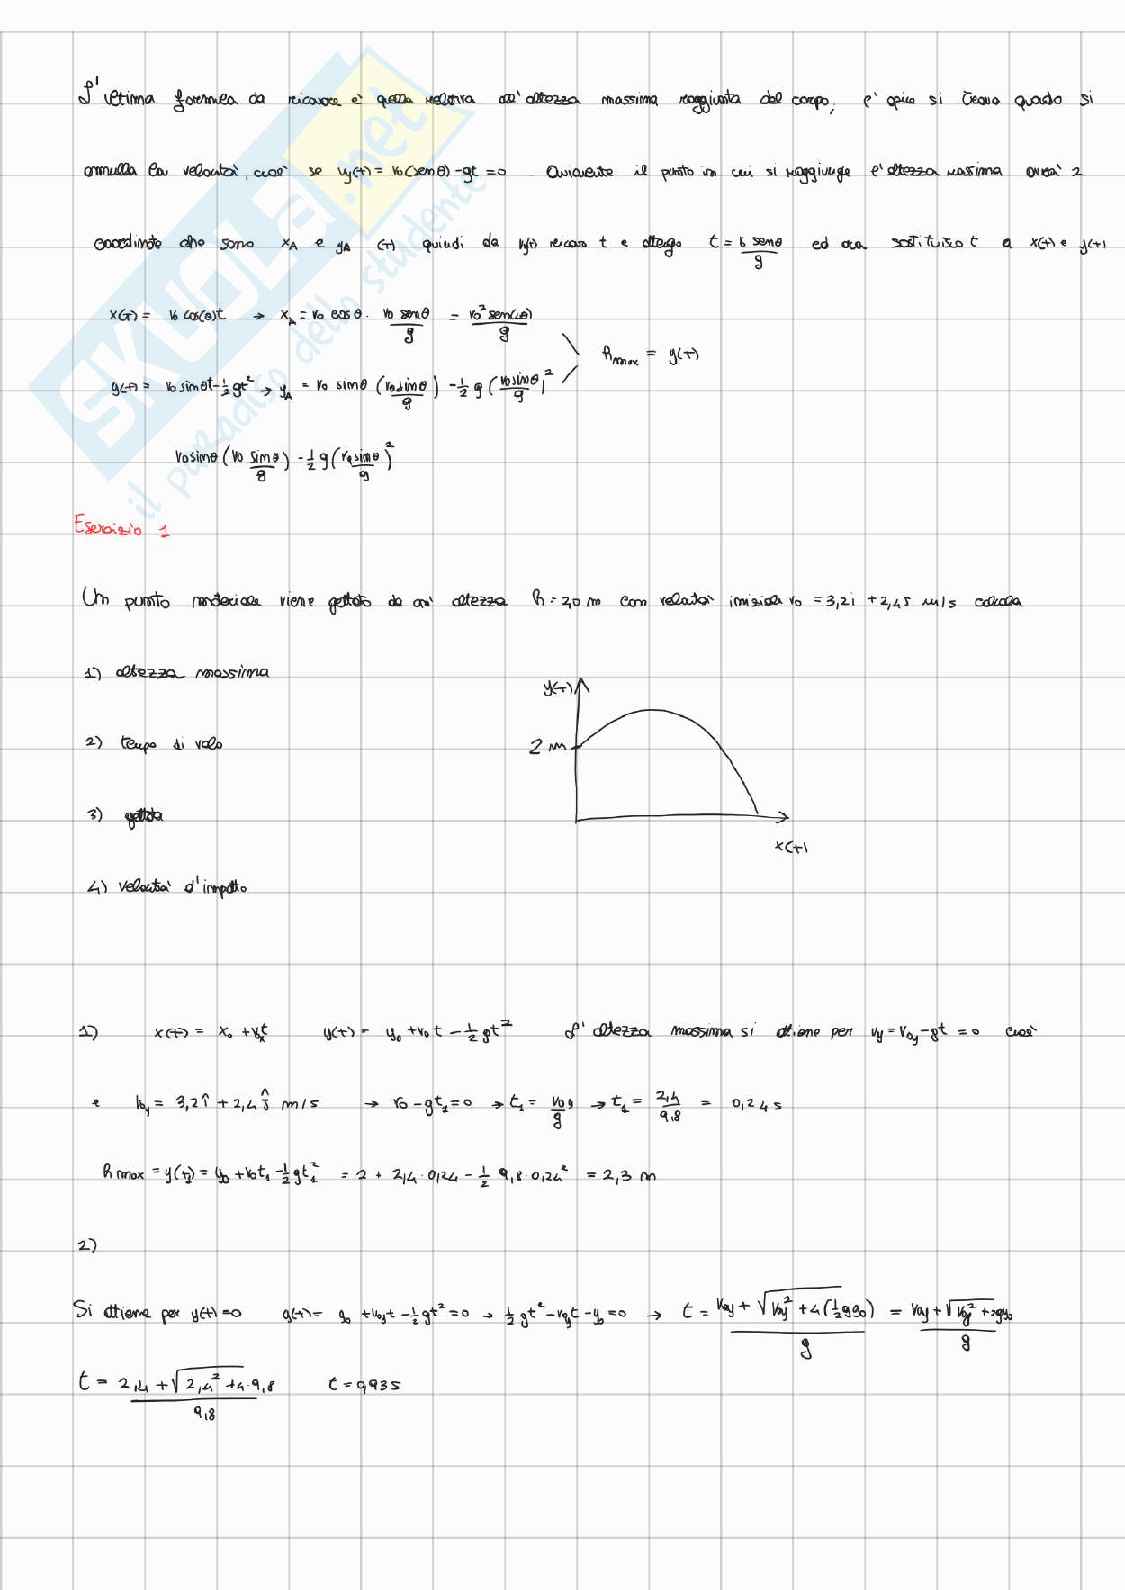 L'ultima formula da ricavare è quella relativa all'altezza massima raggiunta dal corpo, l'apice si trova quando si
annulla la velocità, cioè se vy(t) = v0(senθ) - gt = 0 Ovviamente il punto in cui si raggiunge l'altezza massima avrà 2
coordinate che sono xA e yA (t) quindi da vy(t) ricavo t e ottengo t = v0 senθ / g ed ora sostituisco t a x(t) e y(t)
x(t) = v0 cos(θ)t → xA = v0 cosθ · v0 senθ / g = v0² sen(2θ) / g
hmax = y(t)
y(t) = v0 sinθt - 1/2 gt² → yA = v0 sinθ (v0 sinθ / g) - 1/2 g (v0 sinθ / g)²
v0 sinθ (v0 sinθ / g) - 1/2 g (v0 sinθ / g)²
Esercizio 1
Un punto materiale viene gettato da un' altezza h = 2,0 m con velocità iniziale v0 = 3,2i + 2,4j m/s calcola
1) altezza massima
2) tempo di volo
3) gittata
4) velocità d'impatto
y(t)
2 m
x(t)
1) x(t) = x0 + v0x t y(t) = y0 + v0 t - 1/2 gt² L'altezza massima si ottiene per vy = v0y - gt = 0 cioè
e v0y = 3,2î + 2,4ĵ m/s → v0 - gt1 = 0 → t1 = v0y / g → t1 = 2,4 / 9,8 = 0,24 s
h max = y(t1) = y0 + v0t1 - 1/2 gt1² = 2 + 2,4 · 0,24 - 1/2 9,8 · 0,24² = 2,3 m
2)
Si ottiene per y(t) = 0 y(t) = y0 + v0y t - 1/2 gt² = 0 → 1/2 gt² - v0y t - y0 = 0 → t = v0y + √(v0y² + 4(1/2 g y0)) / g = v0y + √(v0y² + 2gy0) / g
t = 2,4 + √(2,4² + 4 · 9,8) / 9,8 t = 0,93s
SKUOLA.net
il paradiso dello studente